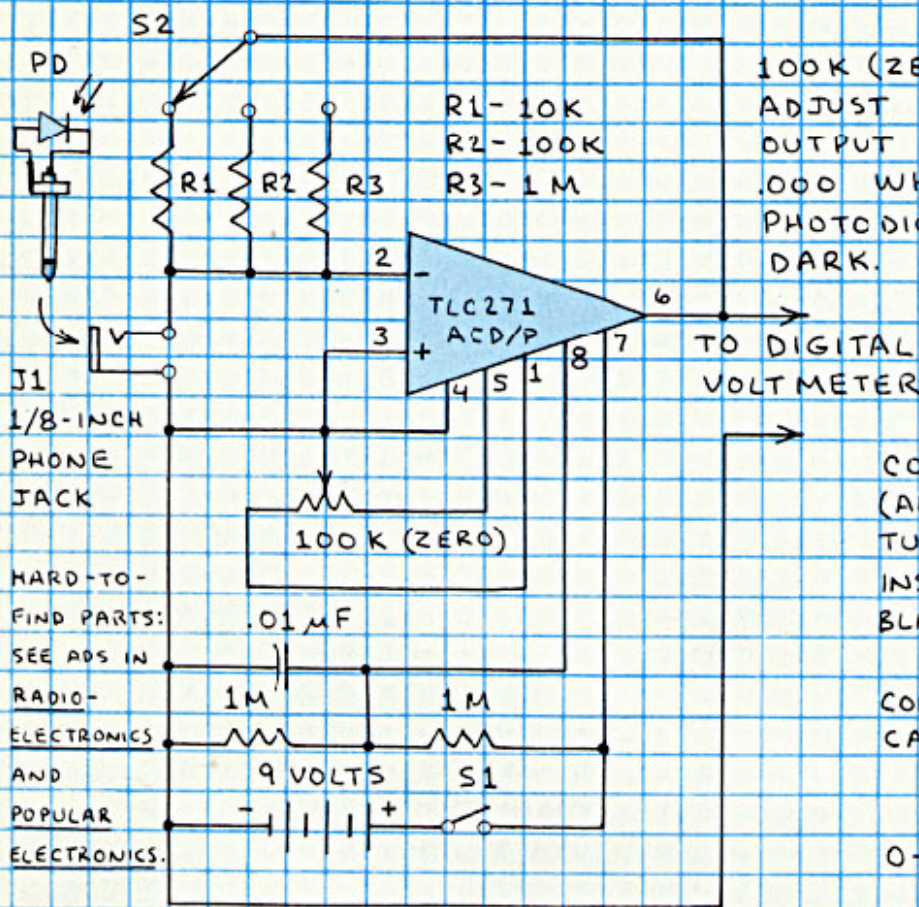 S2
PD
R1
R2
R3
R1-10K
R2-100K
R3-1M
100K (ZE
ADJUST
OUTPUT
.000 WH
PHOTODI
DARK.
2
-
3
+
TLC271
ACD/P
6
7
8
1
5
4
TO DIGITAL
VOLTMETER
J1
1/8-INCH
PHONE
JACK
100K (ZERO)
HARD-TO-
FIND PARTS:
SEE ADS IN
RADIO-
ELECTRONICS
AND
POPULAR
ELECTRONICS.
.01 µF
1M
1M
9 VOLTS
-
+
S1
CO
(A
TU
INS
BLA
CO
CA
0-